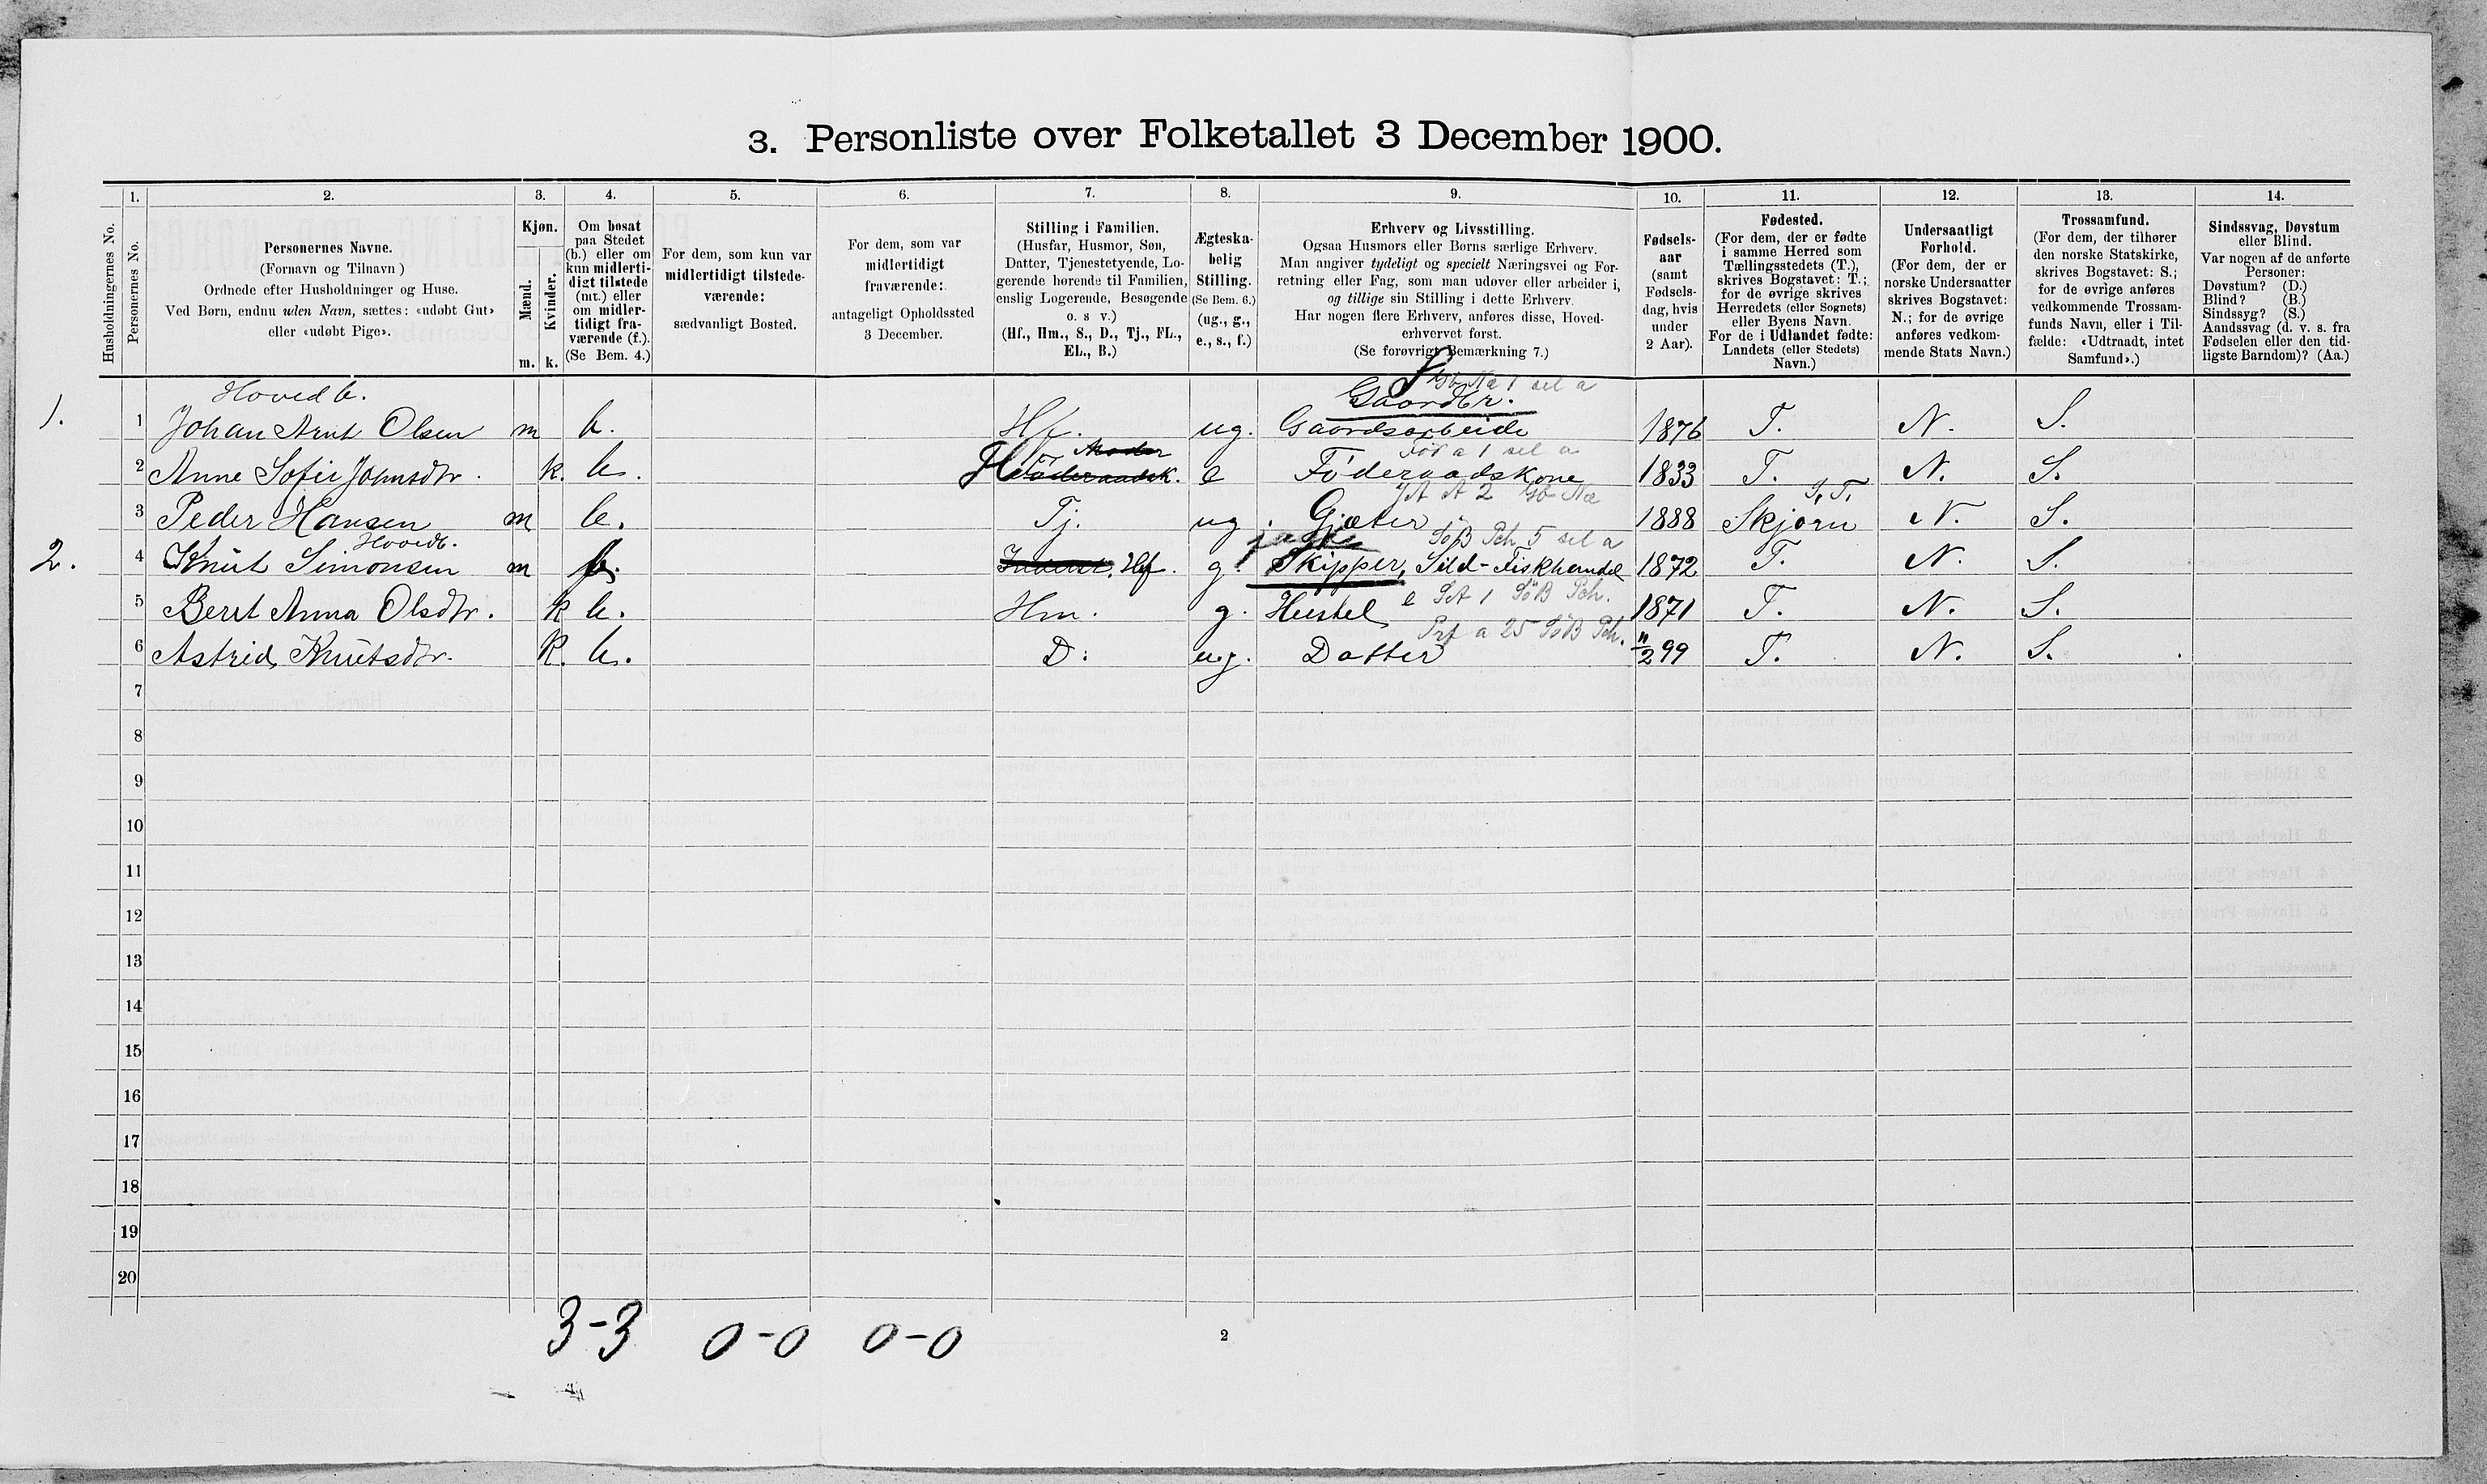 3. Personliste over Folketallet 3 December 1900.
Husholdningernes No.
1.
Personernes No.
2.
Personernes Navne.
(Fornavn og Tilnavn )
Ordnede efter Husholdninger og Huse.
Ved Børn, endnu uden Navn, sættes: «udøbt Gut»
eller «udøbt Pige».
3.
Kjøn.
Mænd.
Kvinder.
m. k.
4.
Om bosat
paa Stedet
(b.) eller om
kun midlerti-
digt tilstede
(mt.) eller
om midler-
tidigt fra-
værende (f.).
(Se Bem. 4.)
5.
For dem, som kun var
midlertidigt tilstede-
værende:
sædvanligt Bosted.
6.
For dem, som var
midlertidigt
fraværende:
antageligt Opholdssted
3 December.
7.
Stilling i Familien.
(Husfar, Husmor, Søn,
Datter, Tjenestetyende, Lo-
gerende hørende til Familien,
enslig Logerende, Besøgende
o. s v.)
(Hf., Hm., S., D., Tj., FL.,
EL., B.)
8.
Ægteska-
belig
Stilling.
(Se Bem. 6.)
(ug., g.,
e., s., f.)
9.
Erhverv og Livsstilling.
Ogsaa Husmors eller Børns særlige Erhverv.
Man angiver tydeligt og specielt Næringsvei og For-
retning eller Fag, som man udøver eller arbeider i,
og tillige sin Stilling i dette Erhverv.
Har nogen flere Erhverv, anføres disse, Hoved-
erhvervet først.
(Se forøvrigt Bemærkning 7.)
10.
Fødsels-
aar
(samt
Fødsels-
dag, hvis
under
2 Aar).
11.
Fødested.
(For dem, der er fødte
i samme Herred som
Tællingsstedets (T.),
skrives Bogstavet: T.;
for de øvrige skrives
Herredets (eller Sognets)
eller Byens Navn.
For de i Udlandet fødte:
Landets (eller Stedets)
Navn.)
12.
Undersaatligt
Forhold.
(For dem, der er
norske Undersaatter
skrives Bogstavet:
N.; for de øvrige
anføres vedkom-
mende Stats Navn.)
13.
Trossamfund.
(For dem, der tilhører
den norske Statskirke,
skrives Bogstavet: S.;
for de øvrige anføres
vedkommende Trossam-
funds Navn, eller i Til-
fælde: «Udtraadt, intet
Samfund».)
14.
Sindssvag, Døvstum
eller Blind.
Var nogen af de anførte
Personer:
Døvstum? (D.)
Blind? (B.)
Sindssyg? (S.)
Aandssvag (d. v. s. fra
Fødselen eller den tid-
ligste Barndom)? (Aa.)
Hovedb. Gb Næ 1 sel a
Gaardbr.
1. 1 Johan Arnt Olsen m b. Hf. ug. Gaardsarbeide 1876 T. N. S.
Moder Föd a 1 sel a
2 Anne Sofie Johnsdtr. k. b. Föderaadsk. e Föderaadskone 1833 T. N. S.
JA A 2 Gb Næ S. T.
3 Peder Hansen m b. Tj. ug. Gjæter 1888 Skjørn N. S.
Hovedb. jagt SøB Sch 5 sel a
2. 4 Knut Simonsen m b. Inderst. Hf. g. Skipper, Sild-Fiskhandel 1872 T. N. S.
e SA 1 SøB Sch.
5 Berit Anna Olsdtr. k b. Hm. g. Husstel 1871 T. N. S.
Prf a 25 SøB Sch.
6 Astrid Knutsdtr. k. b. D. ug. Datter 11/2 99 T. N. S.
7
8
9
10
11
12
13
14
15
16
17
18
19
20
3-3 0-0 0-0
2